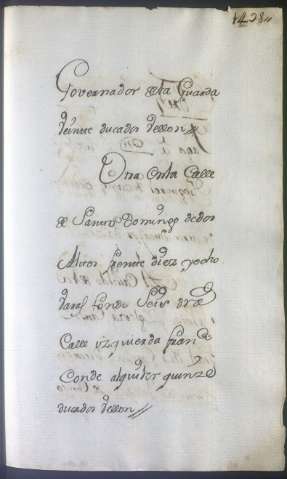 Governador de la Guarda
Veinte ducados Vellon
Otra en la Calle
de Santo Domingo de dos
Altos frente diez y ocho
varas fondo Seis dre
Calle yzquierda Fran
Conde alquiler quinze
ducados Vellon